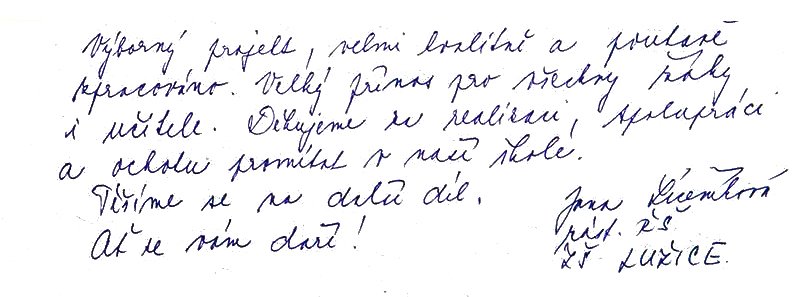 Výborný projekt, velmi kvalitně a poutavě
zpracováno. Velký přínos pro všechny žáky
i učitele. Děkujeme za realizaci, spolupráci
a ochotu promítat v naší škole.
Těšíme se na další díl.
Ať se vám daří!
Jana
zást. ŘŠ
ZŠ LUŽICE